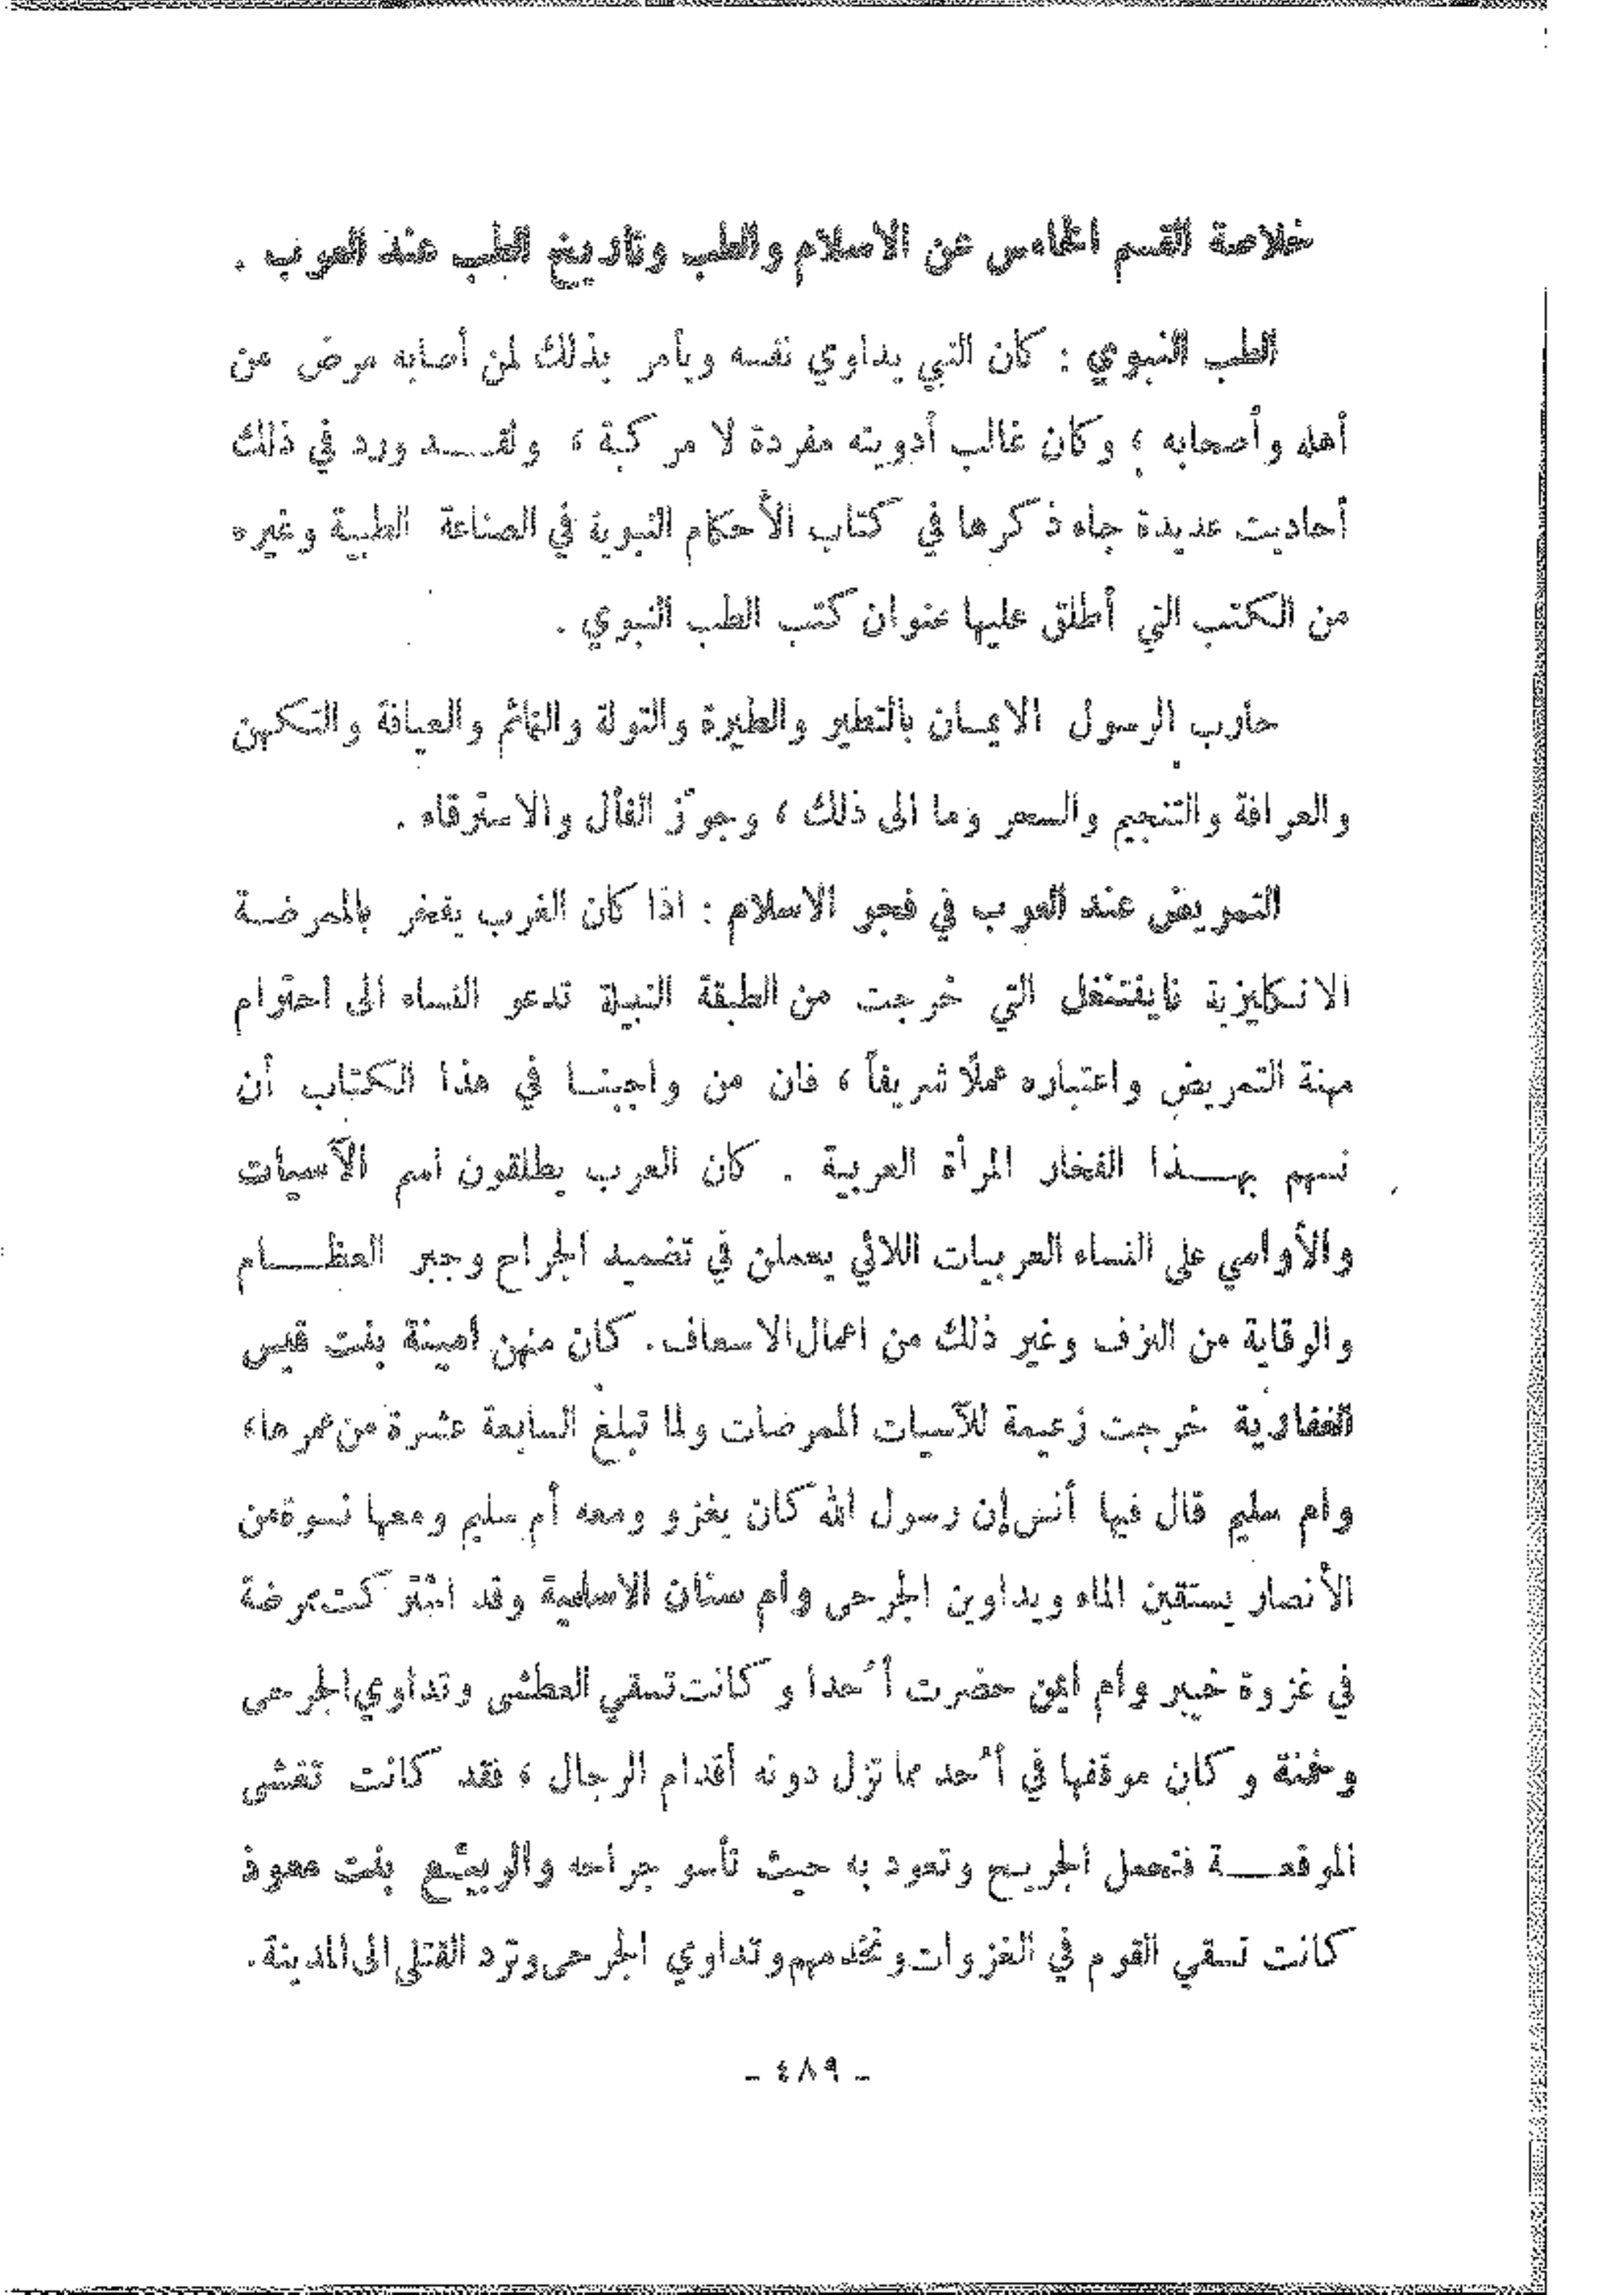 خلاصة القسم الخامس عن الاسلام والطب وتاريخ الطب عند العرب .
الطب النبوي : كان النبي يداوي نفسه ويأمر بذلك لمن أصابه مرض من
أهله وأصحابه ، وكان غالب أدويته مفردة لا مركبة ، ولقـــد ورد في ذلك
أحاديث عديدة جاء ذكرها في كتاب الأحكام النبوية في الصناعة الطبية وغيره
من الكتب التي أطلق عليها عنوان كتب الطب النبوي .
حارب الرسول الايمـان بالتطير والطيرة والتولة والتمائم والعيافة والتكهن
والعرافة والتنجيم والسحر وما الى ذلك ، وجوّز الفأل والاسترقاء .
التمريض عند العرب في فجر الاسلام : اذا كان الغرب يفخر بالممرضـة
الانكليزية نايفتنغل التي خرجت من الطبقة النبيلة تدعو النساء الى احترام
مهنة التمريض واعتباره عملًا شريفاً ، فان من واجبنــا في هذا الكتاب أن
نسهم بهـــذا الفخار المرأة العربية . كان العرب يطلقون اسم الآسيات
والأواسي على النساء العربيات اللائي يعملن في تضميد الجراح وجبر العظـــام
والوقاية من النزف وغير ذلك من اعمال الاسعاف. كان منهن امينة بنت قيس
الغفارية خرجت زعيمة للآسيات الممرضات ولما تبلغ السابعة عشرة من عمرها،
وام سليم قال فيها أنس إن رسول الله كان يغزو ومعه أم سليم ومعها نسوة من
الأنصار يستقين الماء ويداوين الجرحى وام سنان الاسلمية وقد اشتركت ممرضة
في غزوة خيبر وام ايمن حضرت أُحدا وكانت تسقي العطشى وتداوي الجرحى
وحمنة وكان موقفها في أُحد مما تزل دونه أقدام الرجال ، فقد كانت تغشى
الموقعـــة فتحمل الجريـح وتعود به حيث تأسو جراحه والربيّـع بنت معوذ
كانت تسقي القوم في الغزوات وتخدمهم وتداوي الجرحى وترد القتلى الى المدينة.
ـ ٤٨٩ ـ